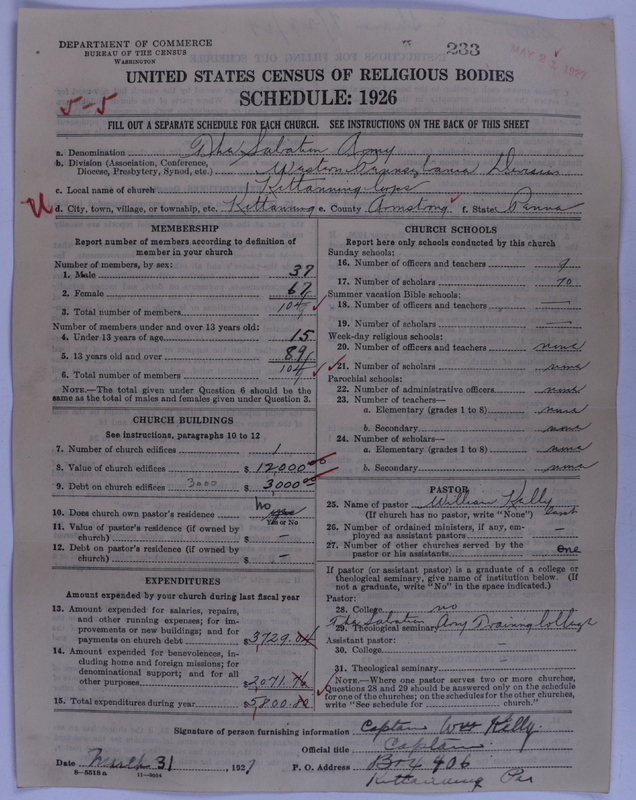 DEPARTMENT OF COMMERCE
BUREAU OF THE CENSUS
WASHINGTON
233
MAY 21 1927
UNITED STATES CENSUS OF RELIGIOUS BODIES
SCHEDULE: 1926
5-5
FILL OUT A SEPARATE SCHEDULE FOR EACH CHURCH. SEE INSTRUCTIONS ON THE BACK OF THIS SHEET
a. Denomination The Salvation Army
b. Division (Association, Conference,
Diocese, Presbytery, Synod, etc.) Western Pennsylvania Division
c. Local name of church Kittanning Cops
d. City, town, village, or township, etc. Kittanning e. County Armstrong f. State Penna
MEMBERSHIP
Report number of members according to definition of
member in your church
Number of members, by sex:
1. Male 37
2. Female 67
3. Total number of members 104
Number of members under and over 13 years old:
4. Under 13 years of age 15
5. 13 years old and over 89
6. Total number of members 104
NOTE.—The total given under Question 6 should be the
same as the total of males and females given under Question 3.
CHURCH BUILDINGS
See instructions, paragraphs 10 to 12
7. Number of church edifices 1
8. Value of church edifices $ 12,000.00
9. Debt on church edifices 3000 $ 3,000.00
10. Does church own pastor's residence no yes
Yes or No
11. Value of pastor's residence (if owned by
church) $ —
12. Debt on pastor's residence (if owned by
church) $ —
EXPENDITURES
Amount expended by your church during last fiscal year
13. Amount expended for salaries, repairs,
and other running expenses; for im-
provements or new buildings; and for
payments on church debt $ 3729.04
14. Amount expended for benevolences, in-
cluding home and foreign missions; for
denominational support; and for all
other purposes $ 2071.76
15. Total expenditures during year $ 5,800.80
CHURCH SCHOOLS
Report here only schools conducted by this church
Sunday schools:
16. Number of officers and teachers 9
17. Number of scholars 70
Summer vacation Bible schools:
18. Number of officers and teachers —
19. Number of scholars —
Week-day religious schools:
20. Number of officers and teachers none
21. Number of scholars none
Parochial schools:
22. Number of administrative officers none
23. Number of teachers—
a. Elementary (grades 1 to 8) none
b. Secondary none
24. Number of scholars—
a. Elementary (grades 1 to 8) none
b. Secondary none
PASTOR
25. Name of pastor William Kelly Capt
(If church has no pastor, write "None")
26. Number of ordained ministers, if any, em-
ployed as assistant pastors —
27. Number of other churches served by the
pastor or his assistants One
If pastor (or assistant pastor) is a graduate of a college or
theological seminary, give name of institution below. (If
not a graduate, write "No" in the space indicated.)
Pastor:
28. College no
29. Theological seminary The Salvation Army Training College
Assistant pastor:
30. College —
31. Theological seminary —
NOTE.—Where one pastor serves two or more churches,
Questions 28 and 29 should be answered only on the schedule
for one of the churches; on the schedules for the other churches,
write "See schedule for church."
Signature of person furnishing information Captain Wm Kelly.
Official title Captain
Date March 31, 1927 P. O. Address Box 406
8—5518a 11—9024
Kittanning Pa